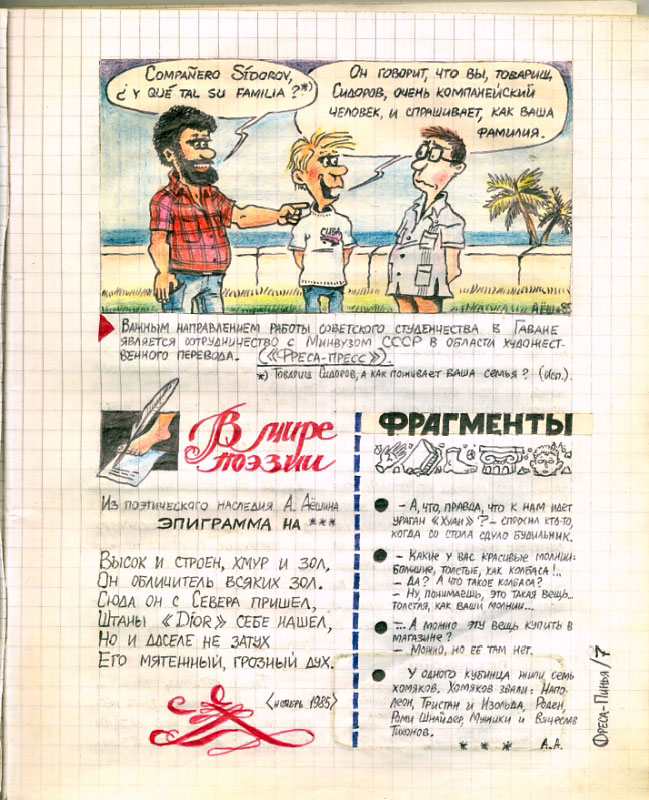 COMPAÑERO SÍDOROV,
¿Y QUÉ TAL SU FAMILIA?*)
ОН ГОВОРИТ, ЧТО ВЫ, ТОВАРИЩ
СИДОРОВ, ОЧЕНЬ КОМПАНЕЙСКИЙ
ЧЕЛОВЕК, И СПРАШИВАЕТ, КАК ВАША
ФАМИЛИЯ.
CUBA
АЁШ 85
ВАЖНЫМ НАПРАВЛЕНИЕМ РАБОТЫ СОВЕТСКОГО СТУДЕНЧЕСТВА В ГАВАНЕ
ЯВЛЯЕТСЯ СОТРУДНИЧЕСТВО С МИНВУЗОМ СССР В ОБЛАСТИ ХУДОЖЕСТ-
ВЕННОГО ПЕРЕВОДА. («ФРЕСА-ПРЕСС»).
*) ТОВАРИЩ СИДОРОВ, А КАК ПОЖИВАЕТ ВАША СЕМЬЯ? (ИСП.).
В мире
поэзии
ИЗ ПОЭТИЧЕСКОГО НАСЛЕДИЯ А. АЁШИНА
ЭПИГРАММА НА ***
ВЫСОК И СТРОЕН, ХМУР И ЗОЛ,
ОН ОБЛИЧИТЕЛЬ ВСЯКИХ ЗОЛ.
СЮДА ОН С СЕВЕРА ПРИШЕЛ,
ШТАНЫ «DIOR» СЕБЕ НАШЕЛ,
НО И ДОСЕЛЕ НЕ ЗАТУХ
ЕГО МЯТЕЖНЫЙ, ГРОЗНЫЙ ДУХ.
<НОЯБРЬ 1985>
ФРАГМЕНТЫ
- А, ЧТО, ПРАВДА, ЧТО К НАМ ИДЕТ
УРАГАН «ХУАН»? - СПРОСИЛ КТО-ТО,
КОГДА СО СТОЛА СДУЛО БУДИЛЬНИК.
- КАКИЕ У ВАС КРАСИВЫЕ МОЛНИИ:
БОЛЬШИЕ, ТОЛСТЫЕ, КАК КОЛБАСА!..
- ДА? А ЧТО ТАКОЕ КОЛБАСА?
- НУ, ПОНИМАЕШЬ, ЭТО ТАКАЯ ВЕЩЬ...
ТОЛСТАЯ, КАК ВАШИ МОЛНИИ...
-... А МОЖНО ЭТУ ВЕЩЬ КУПИТЬ В
МАГАЗИНЕ?
- МОЖНО, НО ЕЁ ТАМ НЕТ.
У ОДНОГО КУБИНЦА ЖИЛИ СЕМЬ
ХОМЯКОВ. ХОМЯКОВ ЗВАЛИ: НАПО-
ЛЕОН, ТРИСТАН И ИЗОЛЬДА, РОДЕН,
РОМИ ШНАЙДЕР, МУМИКИ И ВЯЧЕСЛАВ
ТИХОНОВ.
* * * А.А.
ФРЕСА-ПИНЬЯ/7